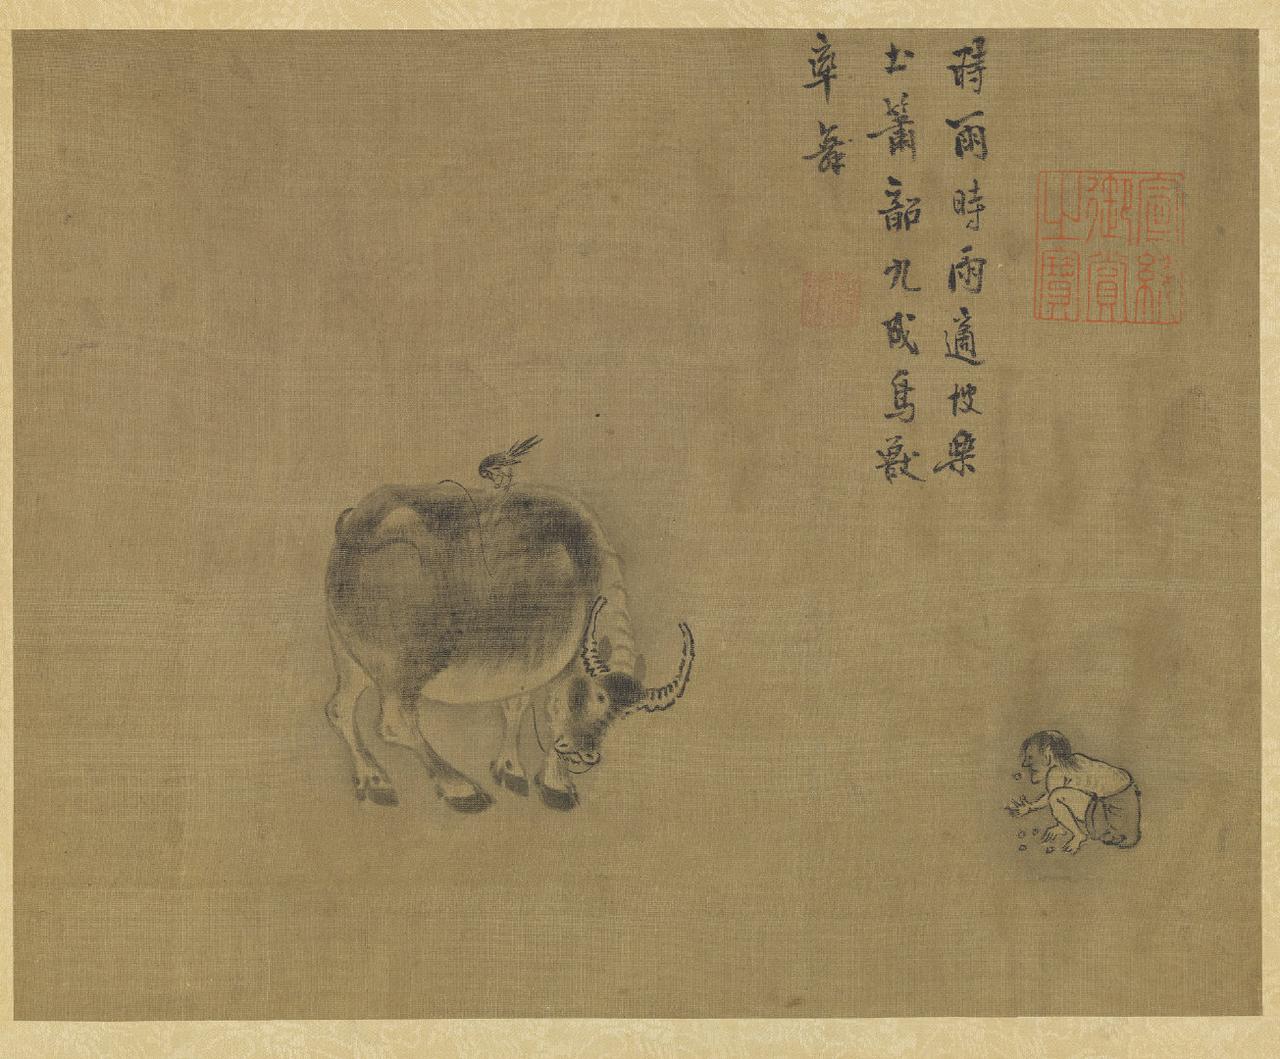 宣統
御賞
之寶
時雨時雨適彼樂
土簫韶九成鳥獸
率舞